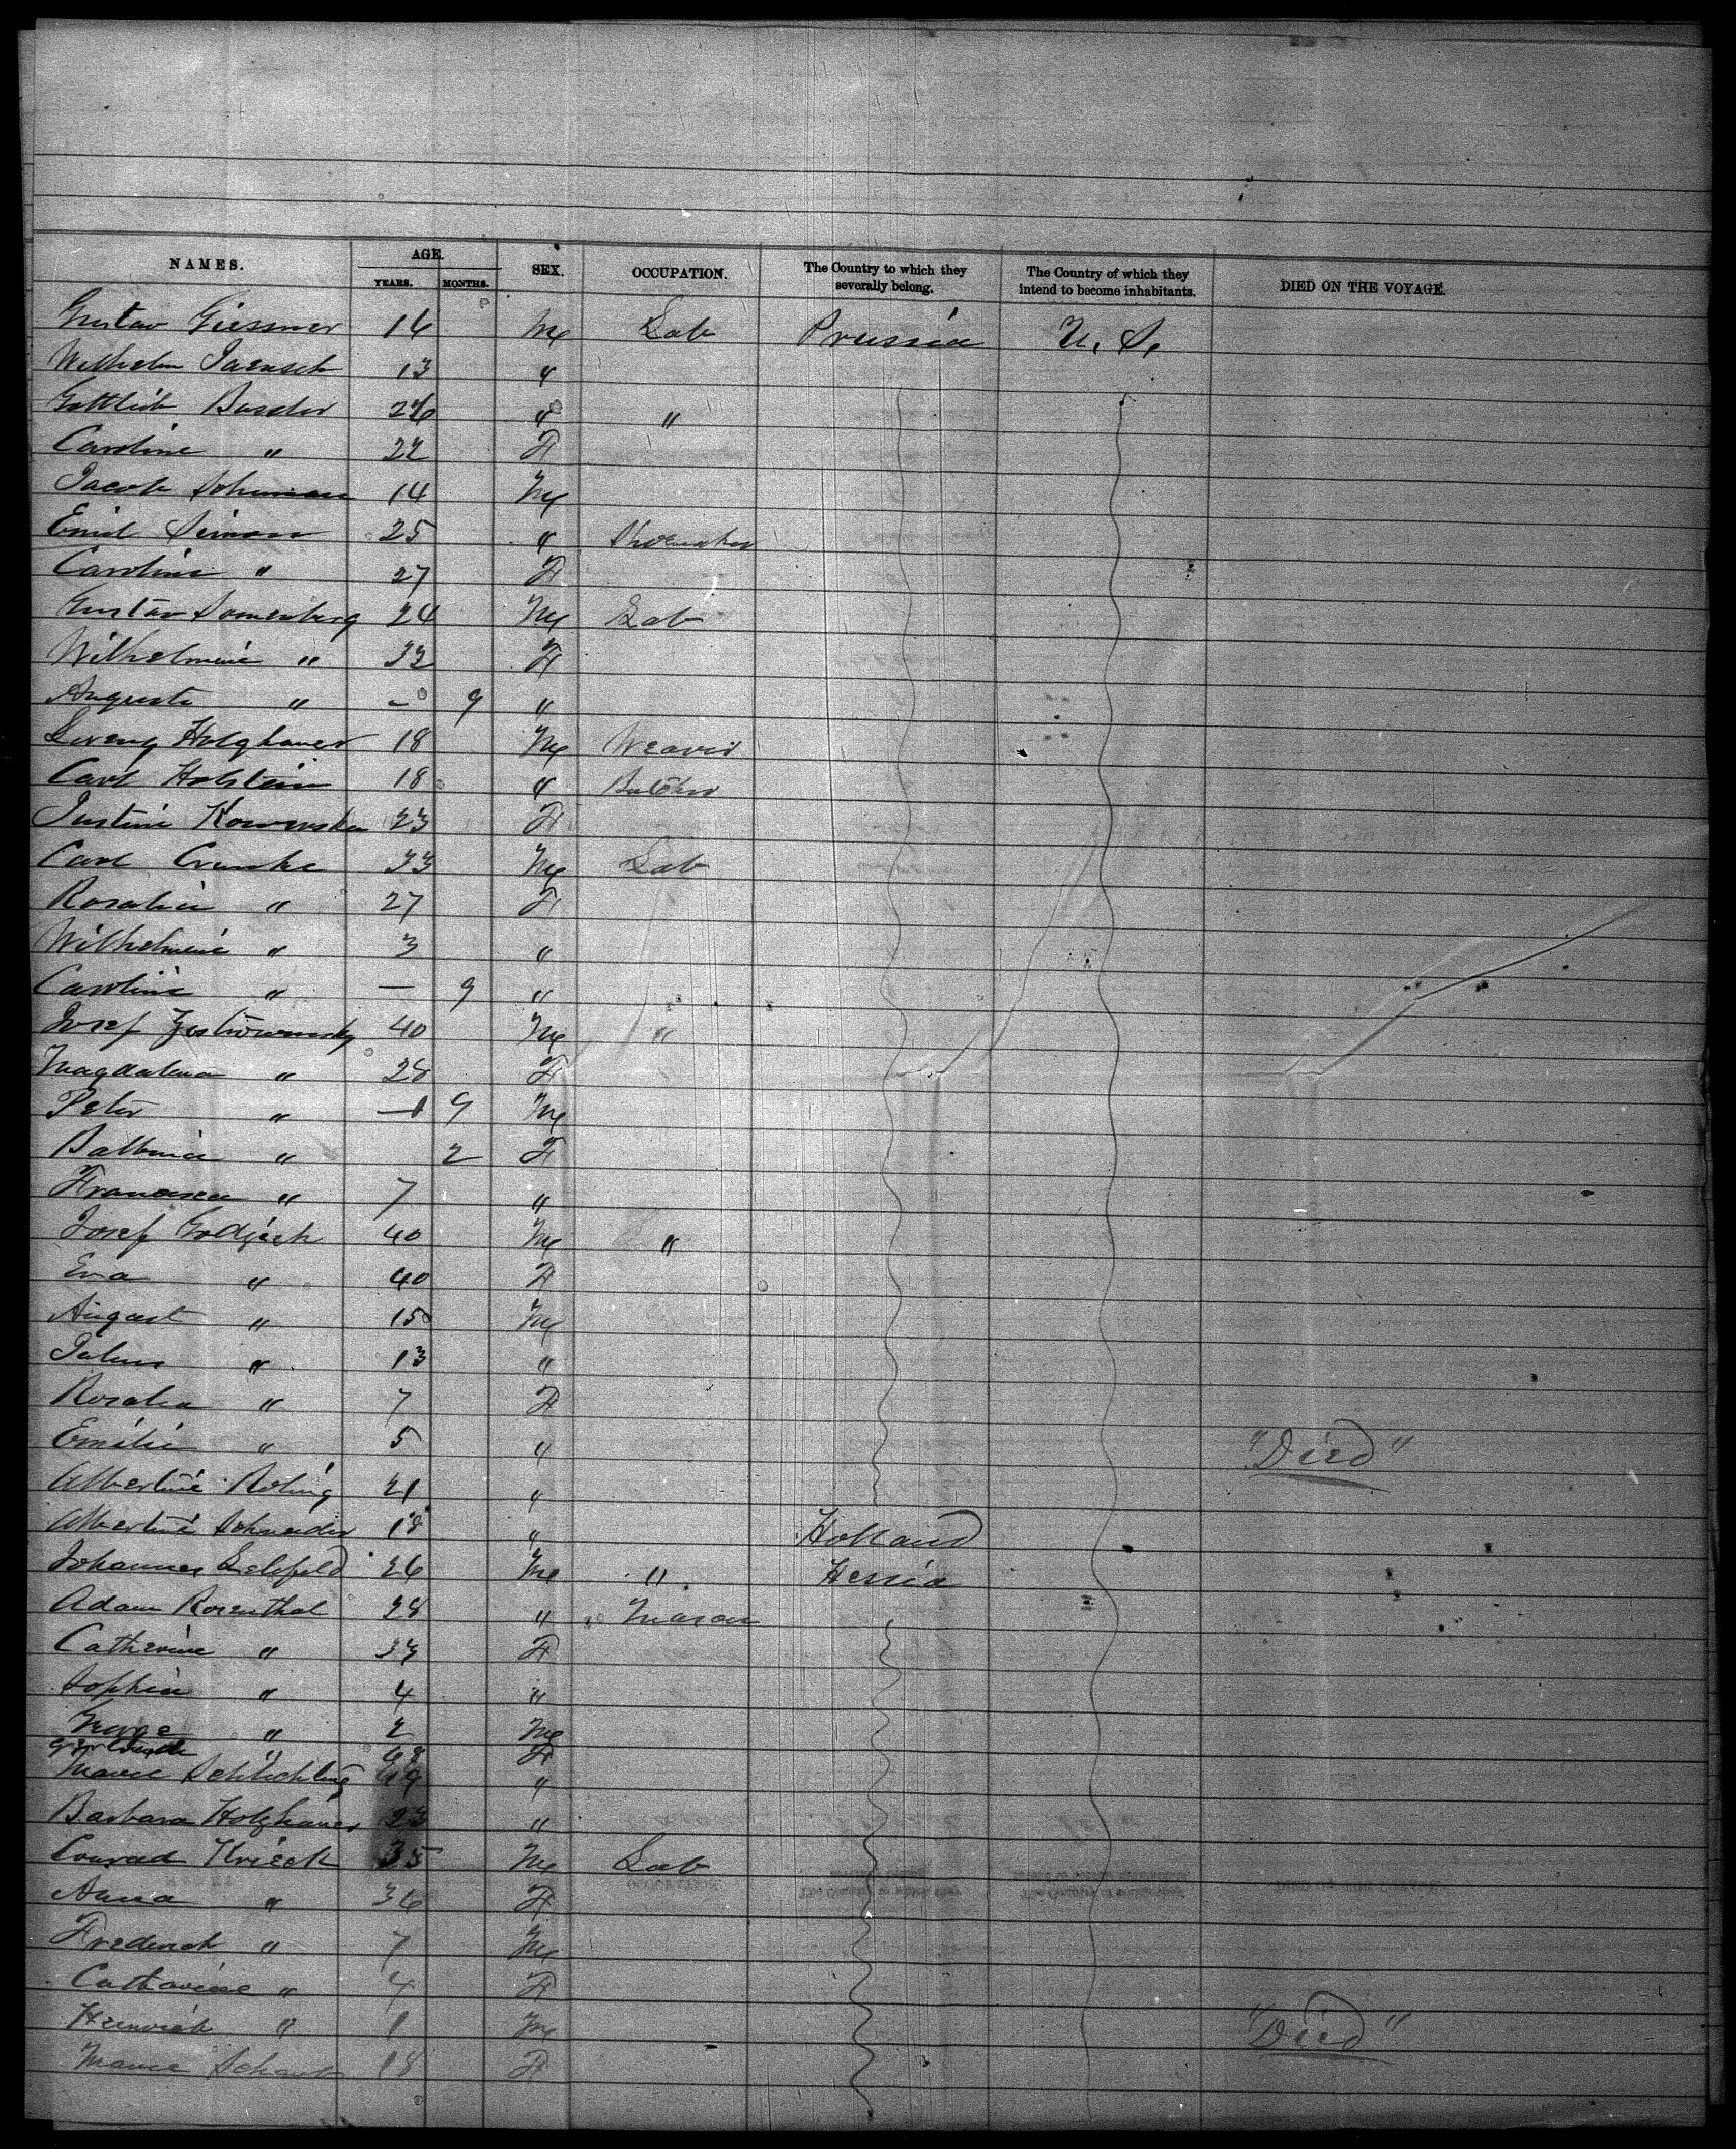 NAMES. AGE. SEX. OCCUPATION. The Country to which they severally belong. The Country of which they intend to become inhabitants. DIED ON THE VOYAGE.
YEARS. MONTHS.
Gustav Giessner 16 M Lab Prussia U. S.
Wilhelm Jaensch 13 "
Gottlieb 26 " "
Caroline " 22 F
Jacob Schuman 14 M
Emil Simon 25 " Shoemaker
Caroline " 27 F
Gustav Sonnenberg 24 M Lab
Wilhelmine " 33 F
Auguste " — 9 "
Lorenz Holzhauer 18 M Weaver
Carl Holstein 18 " Butcher
Justine 23 F
Carl 33 M Lab
Rosalie " 27 F
Wilhelmine " 3 "
Caroline " — 9 "
Josef 40 M "
Magdalena " 28 F
Peter " — 9 M
Balbina " 2 F
Francisca " 7 "
Josef 40 M "
Eva " 40 F
August " 15 M
Julius " 13 "
Rosalia " 7 F
Emilie " 5 " "Died"
Albertine Roling 21 "
Albertine Schneider 18 " Holland
Johannes 26 M " Hessia
Adam Rosenthal 28 " Mason
Catherine " 33 F
Sophia " 4 "
George " 2 M
" 68 F
Marie Schlichting "
Barbara Holzhauer 23 "
Conrad Krieck 35 M Lab
Anna " 36 F
Frederick " 7 M
Catharine " 4 F
Heinrich " 1 M "Died"
Marie Schaub 18 F